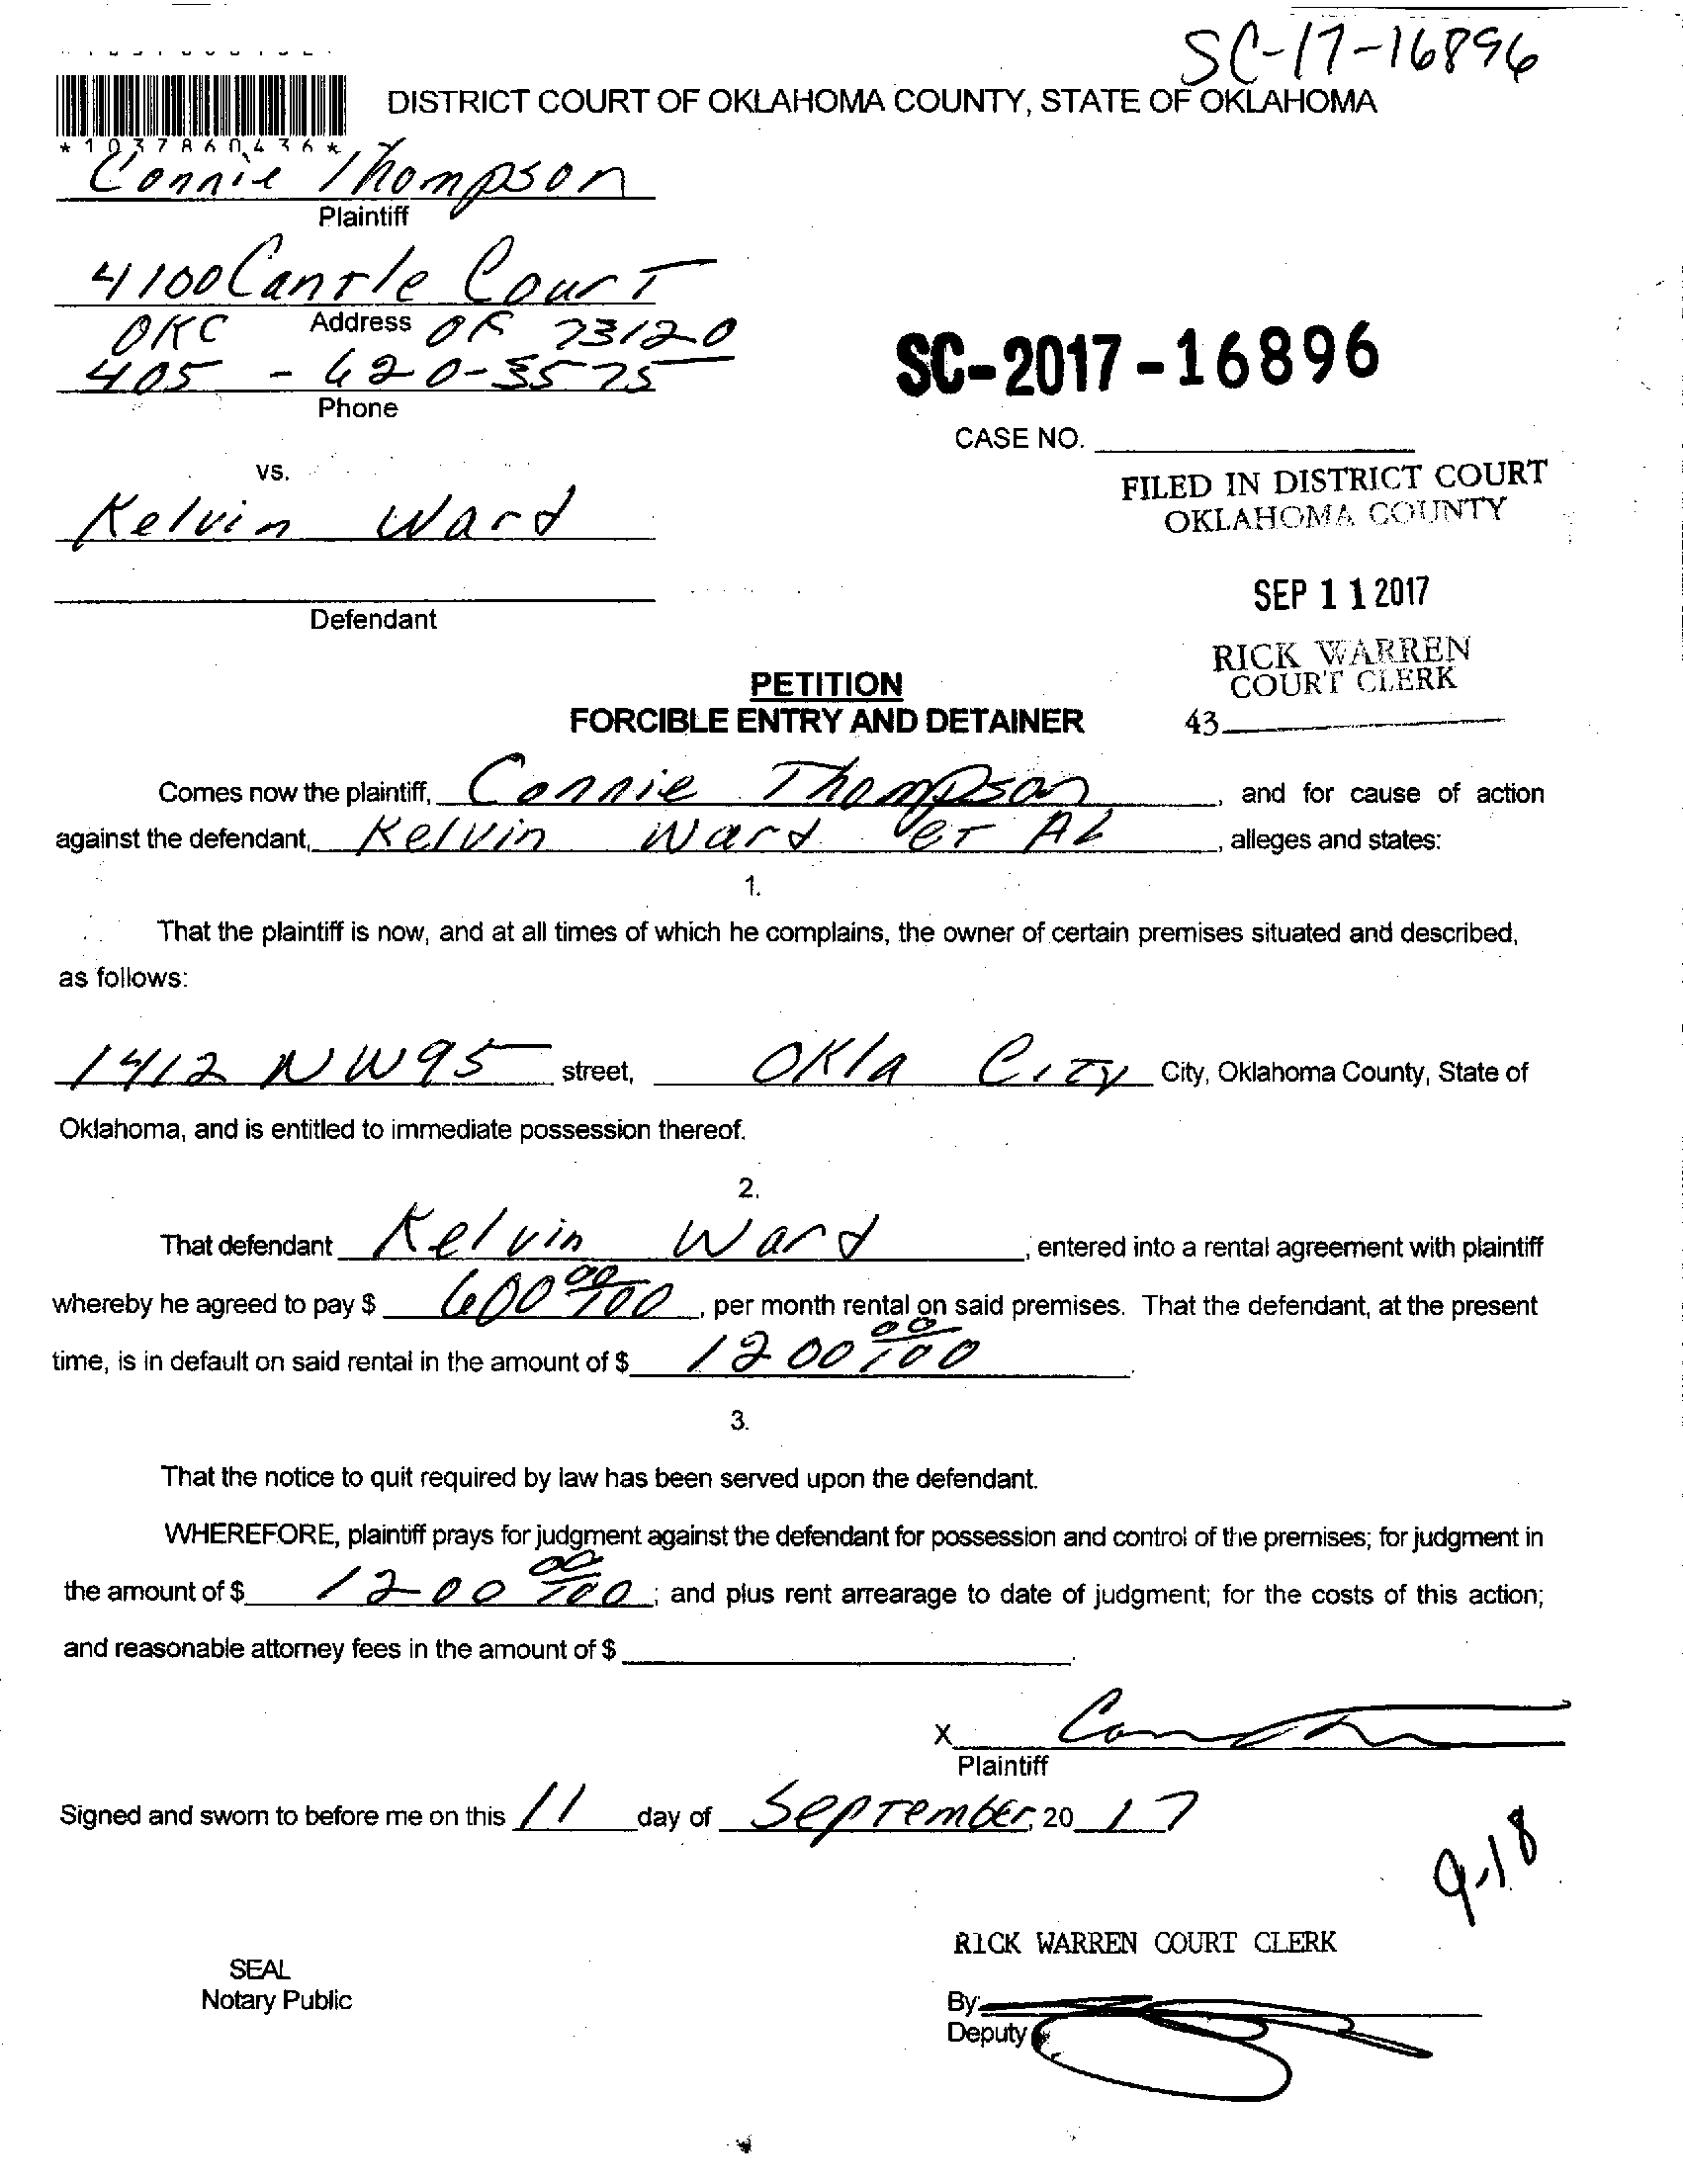 SC-17-16896
DISTRICT COURT OF OKLAHOMA COUNTY, STATE OF OKLAHOMA
*1037860436*
Connie Thompson
Plaintiff
4100 Cantle Court
Address
OKC OK 73120
405-620-3575
Phone
SC-2017-16896
CASE NO.
vs.
FILED IN DISTRICT COURT
OKLAHOMA COUNTY
Kelvin Ward
SEP 11 2017
Defendant
RICK WARREN
COURT CLERK
43
PETITION
FORCIBLE ENTRY AND DETAINER
Comes now the plaintiff, Connie Thompson, and for cause of action
against the defendant, Kelvin Ward et AL, alleges and states:
1.
That the plaintiff is now, and at all times of which he complains, the owner of certain premises situated and described,
as follows:
1412 NW 95 street, Okla City City, Oklahoma County, State of
Oklahoma, and is entitled to immediate possession thereof.
2.
That defendant Kelvin Ward, entered into a rental agreement with plaintiff
whereby he agreed to pay $ 600 00/100, per month rental on said premises. That the defendant, at the present
time, is in default on said rental in the amount of $ 1200 00/100.
3.
That the notice to quit required by law has been served upon the defendant.
WHEREFORE, plaintiff prays for judgment against the defendant for possession and control of the premises; for judgment in
the amount of $ 1200 00/100; and plus rent arrearage to date of judgment; for the costs of this action;
and reasonable attorney fees in the amount of $ .
X
Plaintiff
Signed and sworn to before me on this 11 day of September, 20 17
9-18
RICK WARREN COURT CLERK
SEAL
Notary Public
By:
Deputy